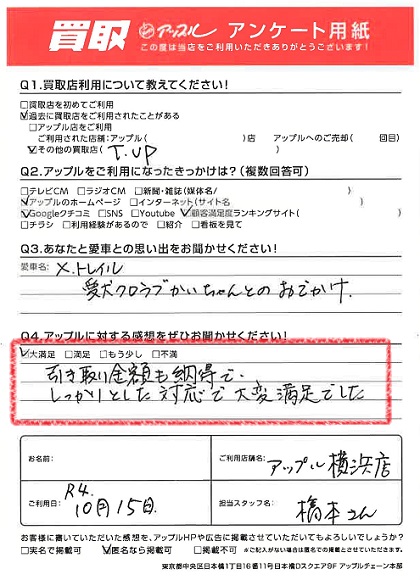 買取 アップル アンケート用紙
この度は当店をご利用いただきありがとうございます!
Q1.買取店利用について教えてください!
□買取店を初めてご利用
☑過去に買取店をご利用されたことがある
□アップル店をご利用
ご利用された店舗:アップル( )店 アップルへのご売却( 回目)
☑その他の買取店( T.UP )
Q2.アップルをご利用になったきっかけは?(複数回答可)
□テレビCM □ラジオCM □新聞・雑誌(媒体名/ )
☑アップルのホームページ □インターネット(サイト名 )
☑Googleクチコミ □SNS □Youtube ☑顧客満足度ランキングサイト( )
□チラシ □利用経験があるので □紹介 □看板を見て
Q3.あなたと愛車との思い出をお聞かせください!
愛車名: X.トレイル
愛犬クロラブかいちゃんとのおでかけ.
Q4.アップルに対する感想をぜひお聞かせください!
☑大満足 □満足 □もう少し □不満
引き取り金額も納得で、
しっかりとした対応で大変満足でした
お名前: ご利用店舗名: アップル横浜店
ご利用日: R4. 10月15日. 担当スタッフ名: 橋本さん
お客様に書いていただいた感想を、アップルHPや広告に掲載させていただいてもよろしいでしょうか?
□実名で掲載可 ☑匿名なら掲載可 □掲載不可 ※ご記入がない場合は匿名での掲載とさせていただきます。
東京都中央区日本橋1丁目16番11号日本橋Dスクエア9F アップルチェーン本部